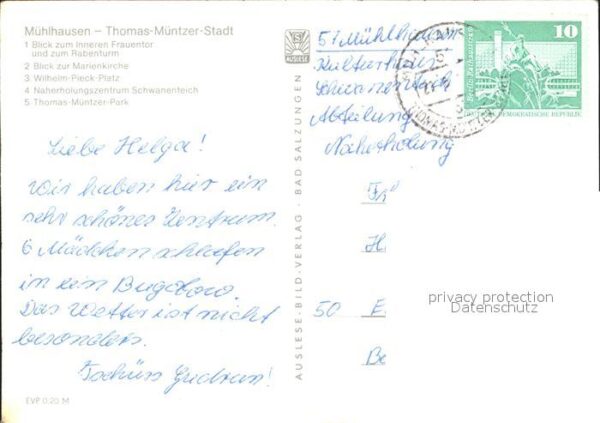 Mühlhausen – Thomas-Müntzer-Stadt
1 Blick zum Inneren Frauentor
und zum Rabenturm
2 Blick zur Marienkirche
3 Wilhelm-Pieck-Platz
4 Naherholungszentrum Schwanenteich
5 Thomas-Müntzer-Park
Liebe Helga!
Wir haben hier ein
sehr schönes Zentrum.
6 Mädchen schlafen
in ein Bugolow.
Das Wetter ist nicht
besonders.
Tschüss Gudrun!
EVP 0,20 M
AUSLESE-BILD-VERLAG · BAD SALZUNGEN
57 Mühlhausen
Kulturhaus
Schwanenteich
Abteilung
Naherholung
10
Berlin, Rathausstraße
DEUTSCHE DEMOKRATISCHE REPUBLIK
H
50 E
Be
privacy protection
Datenschutz